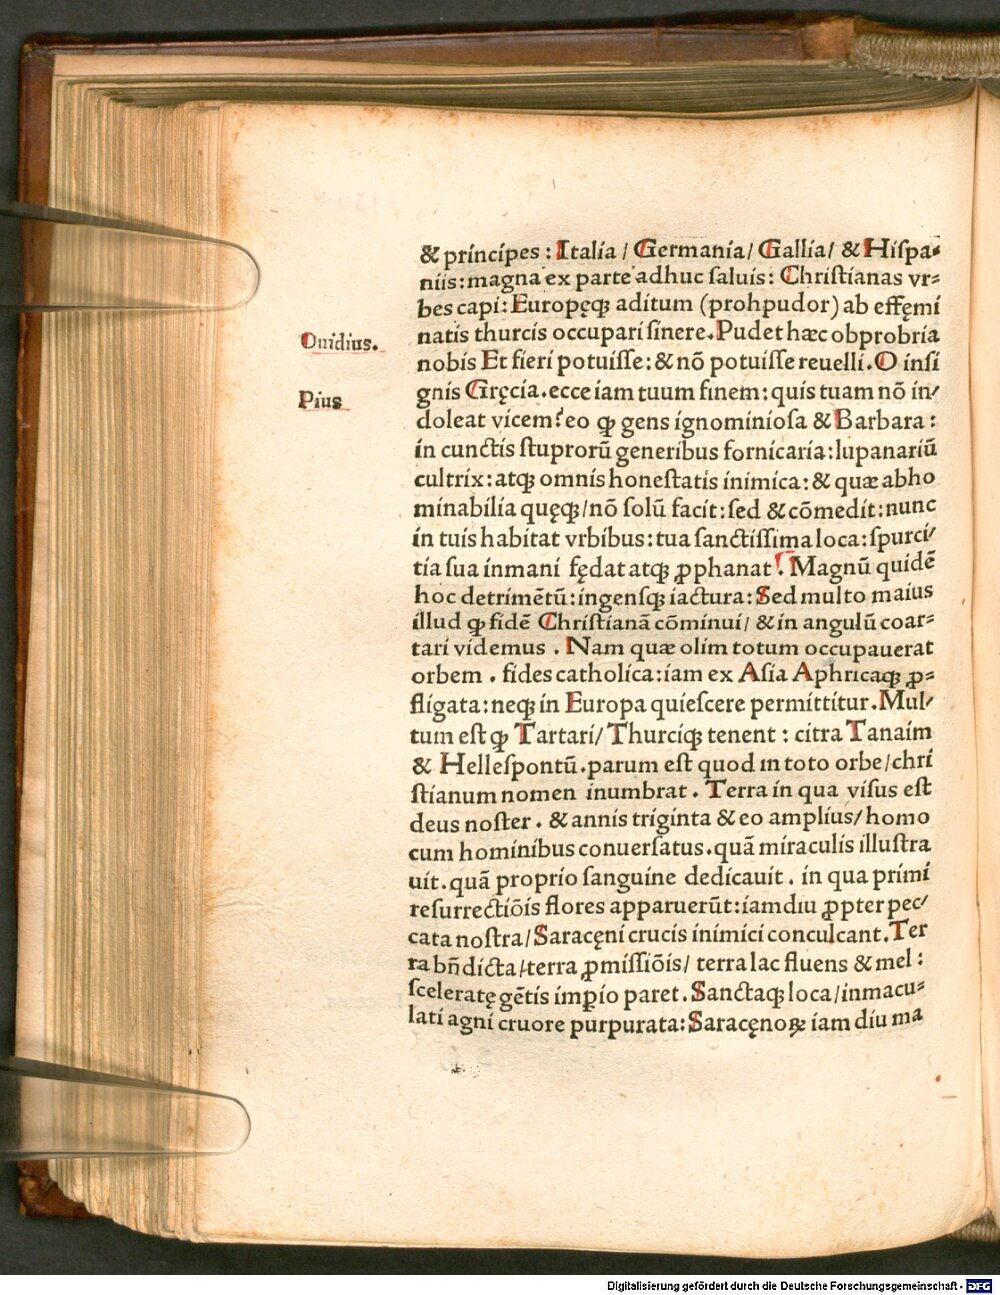 & principes : Italia / Germania / Gallia / & Hispa-
niis : magna ex parte adhuc saluis : Christianas vr=
bes capi : Europęqꝫ aditum (prohpudor) ab effęmi
natis thurcis occupari sinere. Pudet hæc obprobria
Ouidius.
nobis Et fieri potuisse : & nō potuisse reuelli. O insi
gnis Gręcia. ecce iam tuum finem : quis tuam nō in/
Pius
doleat vicem? eo ꝙ gens ignominiosa & Barbara :
in cunctis stuprorū generibus fornicaria : lupanariū
cultrix : atqꝫ omnis honestatis inimica : & quæ abho
minabilia quęqꝫ / nō solū facit : sed & cōmedit : nunc
in tuis habitat vrbibus : tua sanctissima loca : spurci/
tia sua inmani fędat atqꝫ ꝓphanat. Magnū quidē
hoc detrimētū : ingensqꝫ iactura : Sed multo maius
illud ꝙ fidē Christianā cōminui / & in angulū coar=
tari videmus . Nam quæ olim totum occupauerat
orbem . fides catholica : iam ex Asia Aphricaqꝫ ꝓ=
fligata : neqꝫ in Europa quiescere permittitur. Mul/
tum est ꝙ Tartari / Thurciqꝫ tenent : citra Tanaim
& Hellespontū. parum est quod in toto orbe / chri
stianum nomen inumbrat . Terra in qua visus est
deus noster . & annis triginta & eo amplius / homo
cum hominibus conuersatus. quā miraculis illustra
uit. quā proprio sanguine dedicauit . in qua primi
resurrectiōis flores apparuerūt : iamdiu ꝓpter pec/
cata nostra / Saracęni crucis inimici conculcant. Ter
ra bn̄dicta / terra ꝓmissiōis / terra lac fluens & mel :
sceleratę gētis imꝑio paret . Sanctaqꝫ loca / inmacu=
lati agni cruore purpurata : Saracęnoꝝ iam diu ma
Digitalisierung gefördert durch die Deutsche Forschungsgemeinschaft - DFG